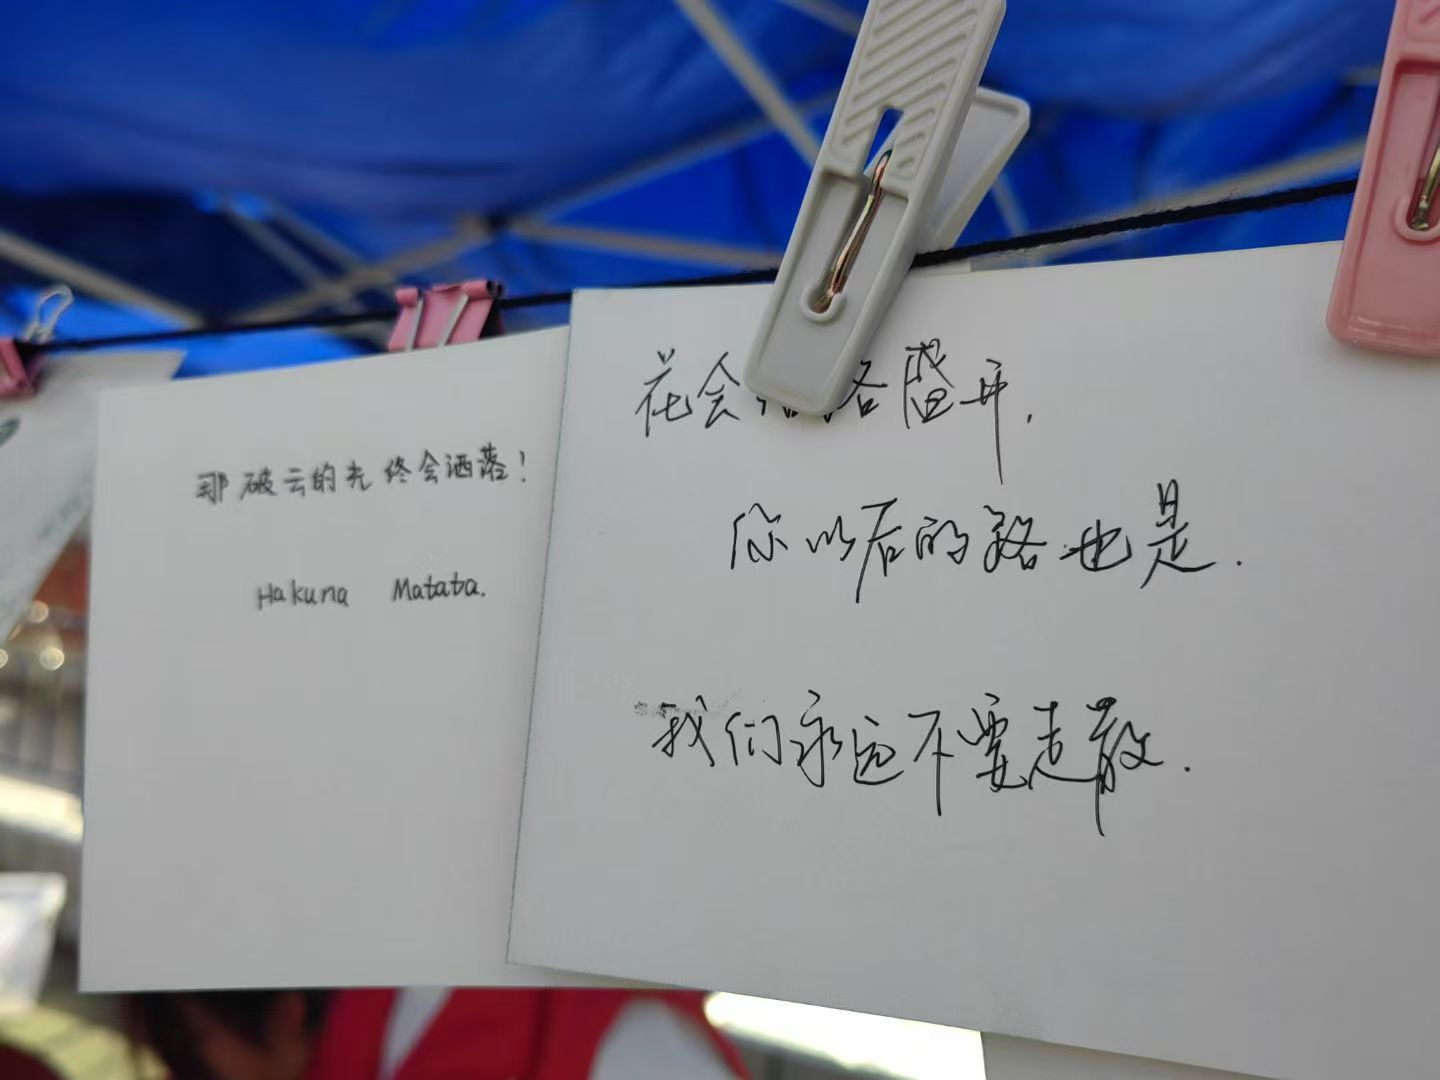 那破云的光终会洒落！
Hakuna Matata.
花会
盛开，
你以后的路也是．
我们永远不要走散．